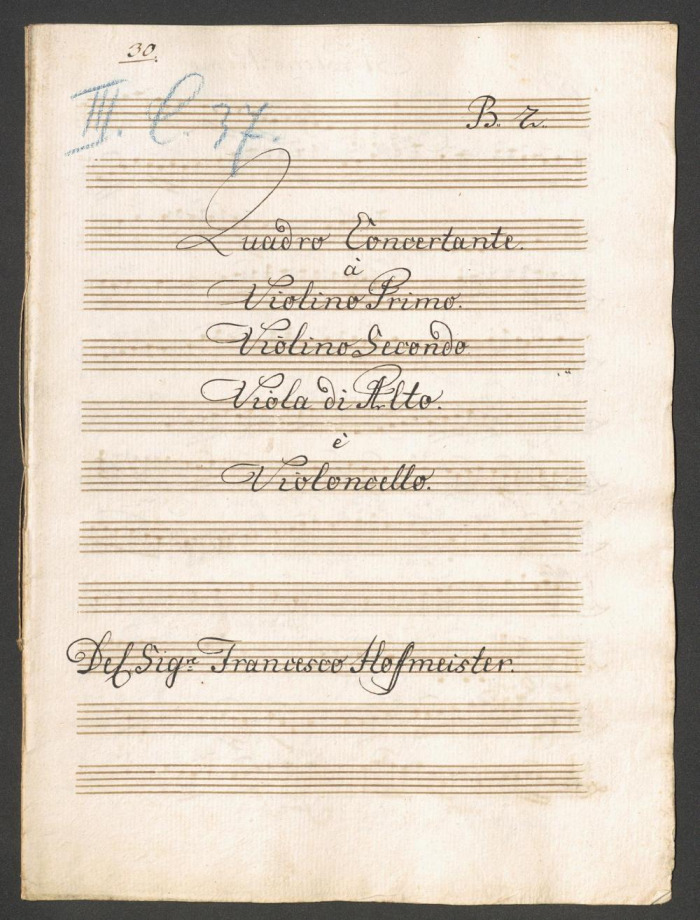 30.
III. C. 37.
B. 2.
Quadro Concertante.
à
Violino Primo.
Violino Secondo
Viola di Alto.
è
Violoncello.
Del Sigr. Francesco Hoffmeister.